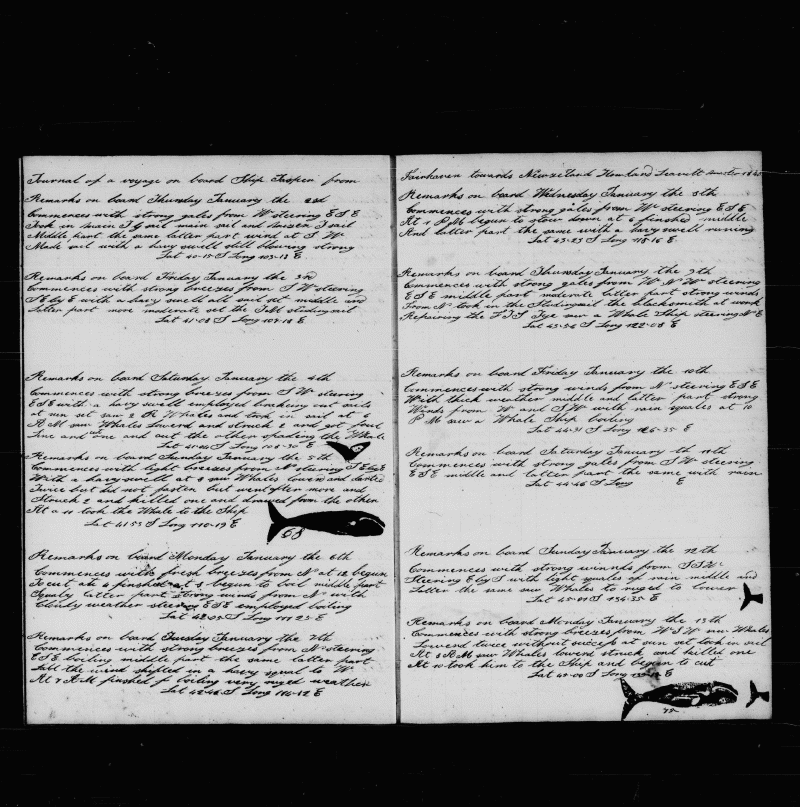 Journal of a voyage on board Ship Jasper from
Remarks on board Thursday January the 2nd
Commences with strong gales from W steering E S E
Took in main T G sail main sail and mizzen T sail
Middle part the same latter part wind at S W
Made sail with a havy swell still blowing strong
Lat 40-15 S Long 103-13 E
Remarks on board Friday January the 3rd
Commences with strong breezes from S W steering
S E by E with a havy swell all sail set middle and
Latter part more moderate set the T M studingsail
Lat 41-08 S Long 107-18 E
Remarks on board Saturday January the 4th
Commences with strong breezes from S W steering
E S E with a havy swell employed breaking out
at sun set saw 2 R Whales and took in sail at 6
A M saw Whales Lowerd and struck 2 and got foul
Line and one and cut the other the Whale
Lat S Long 108-30 E
Remarks on board Sunday January the 5th
Commences with light breezes from N steering S E by E
With a havy swell at 8 saw Whales lowerd and darted
Twice but did not fasten but went after more and
Struck 2 and killed one and drawed from the other
At 11 took the Whale to the Ship
Lat 41-53 S Long 110-19 E
68
Remarks on board Monday January the 6th
Commences with fresh breezes from N at 12 begun
To cut at 4 finished at 5 begun to boil middle part
Squaly latter part strong winds from N with
Cloudy weather steering E S E employed boiling
Lat 42-35 S Long 111 23 E
Remarks on board Tuesday January the 7th
Commences with strong breezes from N steering
E S E boiling middle part the same latter part
Lull the wind shifted in a havy squal to W
At 7 A M finished boiling very ruged weather
Lat 42-46 S Long 114-12 E
Fairhaven towards Newzeland Howland Leavitt master 1840
Remarks on board Wednesday January the 8th
Commences with strong gales from W steering E S E
At 1 P M begun to stow down at 6 finished middle
And latter part the same with a havy swell runing
Lat 43-23 S Long 118-16 E
Remarks on board Thursday January the 9th
Commences with strong gales from W N W steering
E S E middle part moderate latter part strong winds
From N took in the Studingsail the blacksmith at work
Repairing the T S Tye saw a Whale Ship steering N E
Lat 43-54 S Long 122-08 E
Remarks on board Friday January the 10th
Commences with strong winds from N steering E S E
With thick weather middle and latter part strong
Winds from W and S W with rain squales at 10
P M saw a Whale Ship boiling
Lat 44-31 S Long 126-35 E
Remarks on board Saturday January the 11th
Commences with strong gales from S W steering
E S E middle and latter part the same with rain
Lat 44-46 S Long E
Remarks on board Sunday January the 12th
Commences with strong winnds from S S W
Steering E by S with light squales of rain middle and
Latter the same saw Whales to ruged to lower
Lat 45-01 S 134-35 E
Remarks on board Monday January the 13th
Commences with strong breezes from W S W saw Whales
Lowerd twice without success at sun set took in sail
At 8 A M saw Whales lowerd struck and killed one
At 10 took him to the Ship and begun to cut
Lat 45-00 S Long E
75